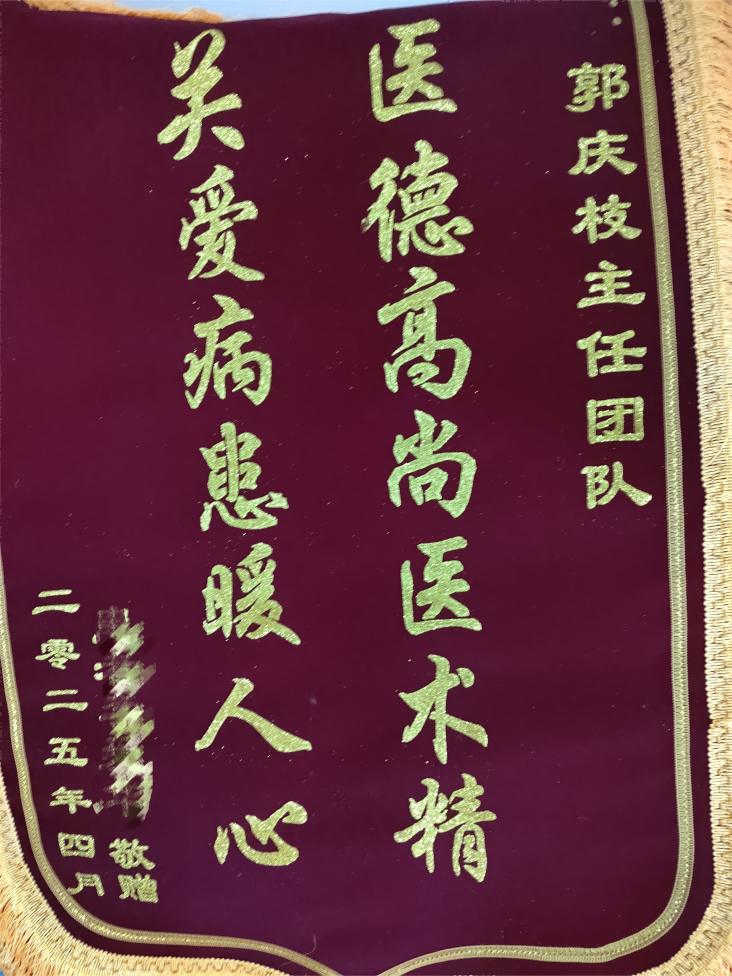 郭庆枝主任团队
医德高尚医术精
关爱病患暖人心
敬赠
二零二五年四月